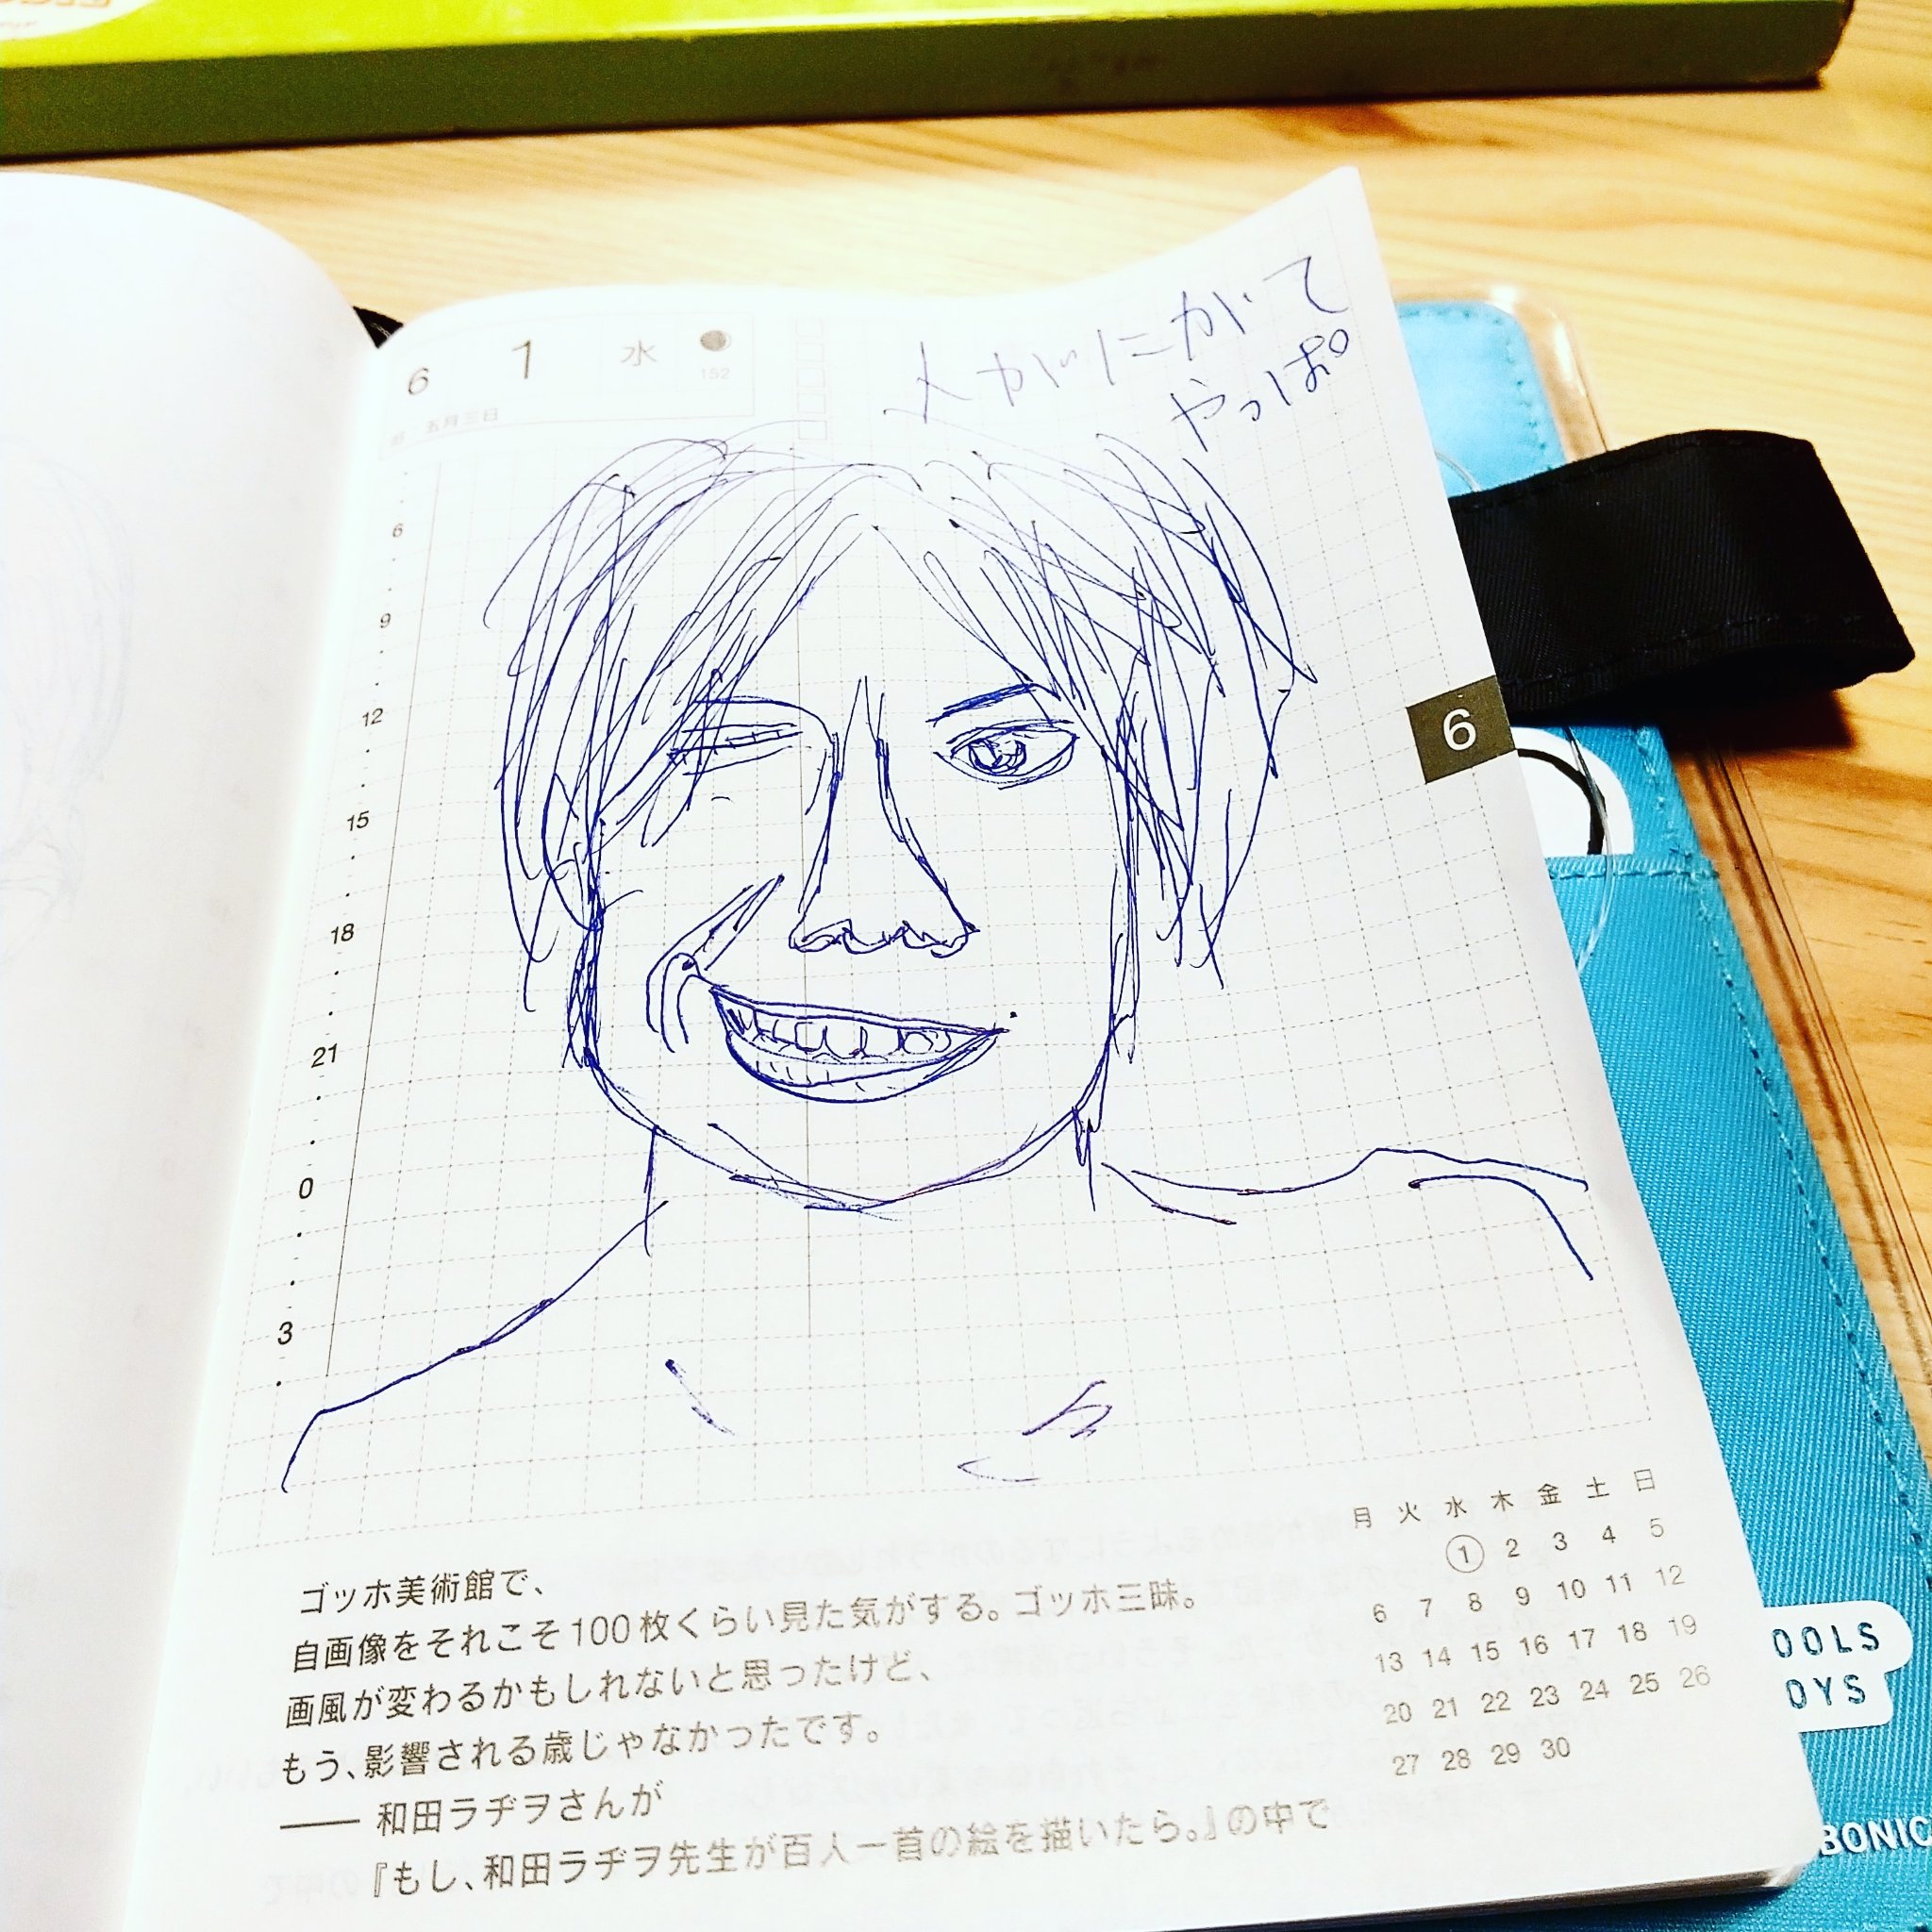 6 1 水
152
旧 五月三日
人がにがて
やっぱ
6
9
12
15
18
21
0
3
6
月 火 水 木 金 土 日
1 2 3 4 5
6 7 8 9 10 11 12
13 14 15 16 17 18 19
20 21 22 23 24 25 26
27 28 29 30
ゴッホ美術館で、
自画像をそれこそ100枚くらい見た気がする。ゴッホ三昧。
画風が変わるかもしれないと思ったけど、
もう、影響される歳じゃなかったです。
―― 和田ラヂヲさんが
『もし、和田ラヂヲ先生が百人一首の絵を描いたら。』の中で
OOLS
OYS
BONIC